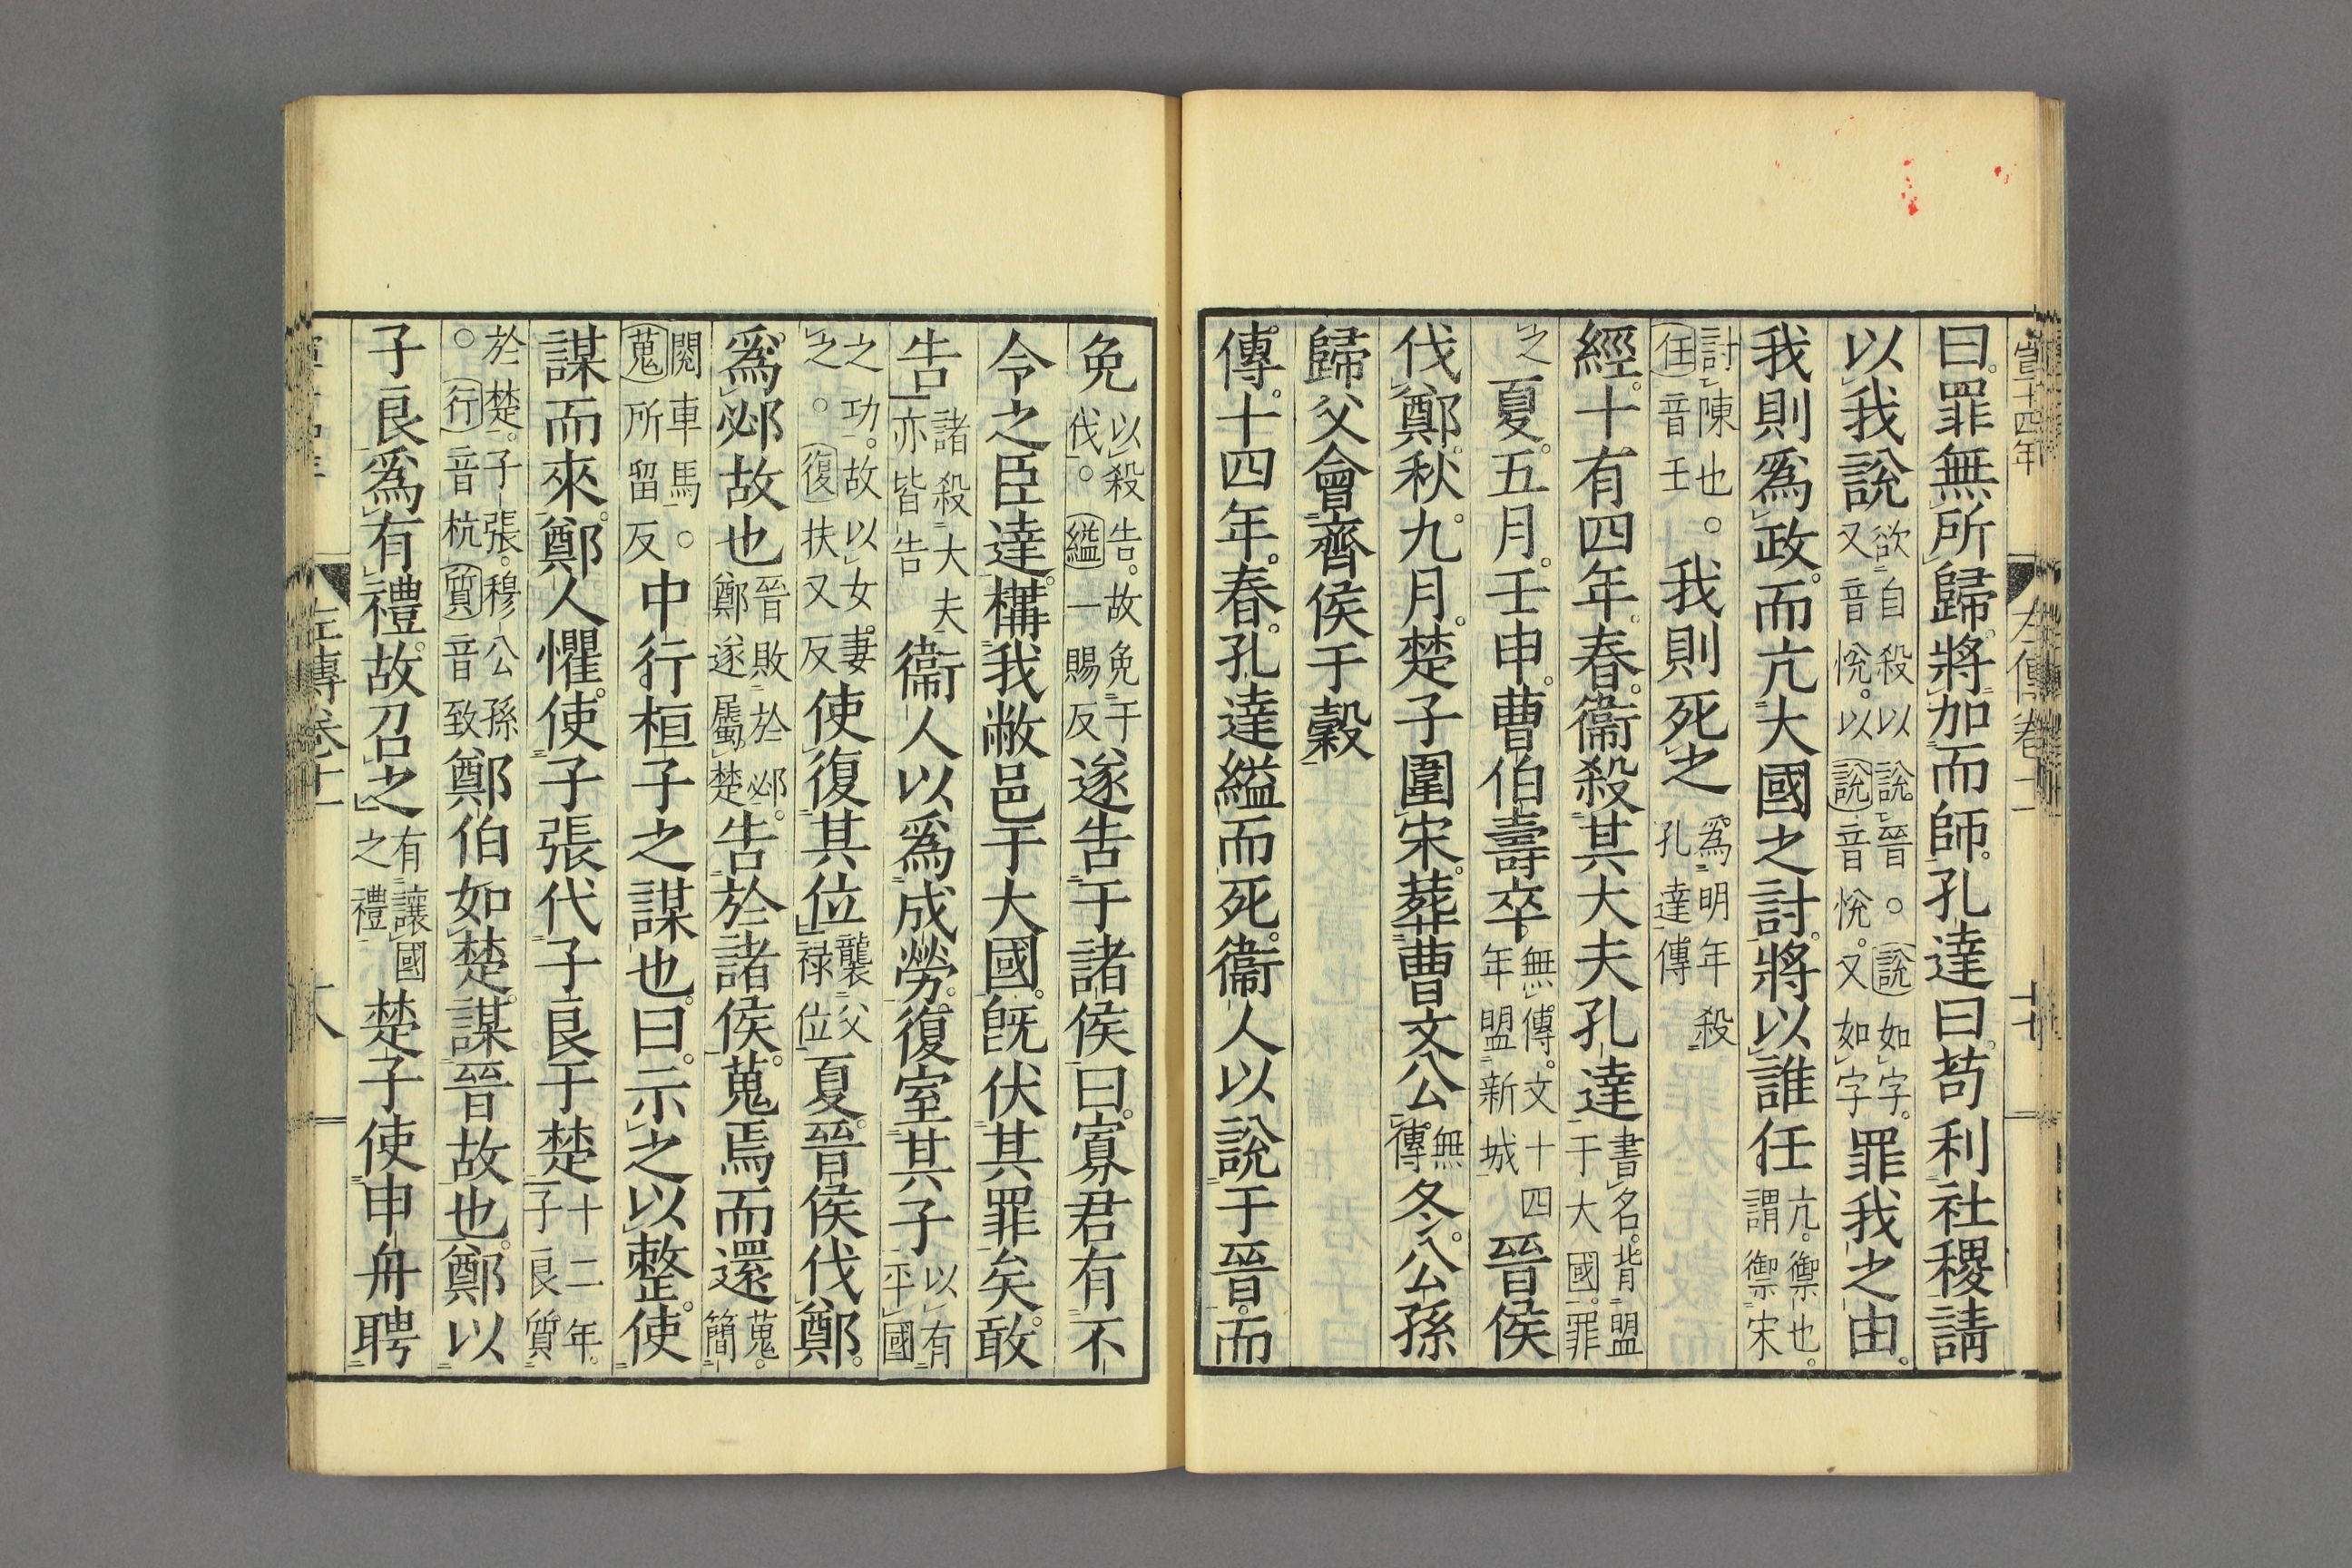 宣十四年 左傳卷十一 十七
曰罪無所歸將加而師孔達曰苟利社稷請
以我說欲自殺以說晉○說如字又音悅以說音悅又如字罪我之由
我則爲政而亢大國之討將以誰任亢禦也謂禦宋
討陳也○任音壬我則死之爲明年殺孔達傳
經十有四年春衞殺其大夫孔達書名背盟于大國罪
之夏五月壬申曹伯壽卒無傳文十四年盟新城晉侯
伐鄭秋九月楚子圍宋葬曹文公無傳冬公孫
歸父會齊侯于穀
傳十四年春孔達縊而死衞人以說于晉而
免以殺告故免于伐○縊一賜反遂告于諸侯曰寡君有不
令之臣達構我敝邑于大國旣伏其罪矣敢
告諸殺大夫亦皆告衞人以爲成勞復室其子以有平國
之功故以女妻之○復扶又反使復其位襲父祿位夏晉侯伐鄭
爲邲故也晉敗於邲鄭遂屬楚告於諸侯蒐焉而還蒐簡
閱車馬○蒐所留反中行桓子之謀也曰示之以整使
謀而來鄭人懼使子張代子良于楚十二年子良質
於楚子張穆公孫○行音杭質音致鄭伯如楚謀晉故也鄭以
子良爲有禮故召之有讓國之禮楚子使申舟聘
左傳卷十一